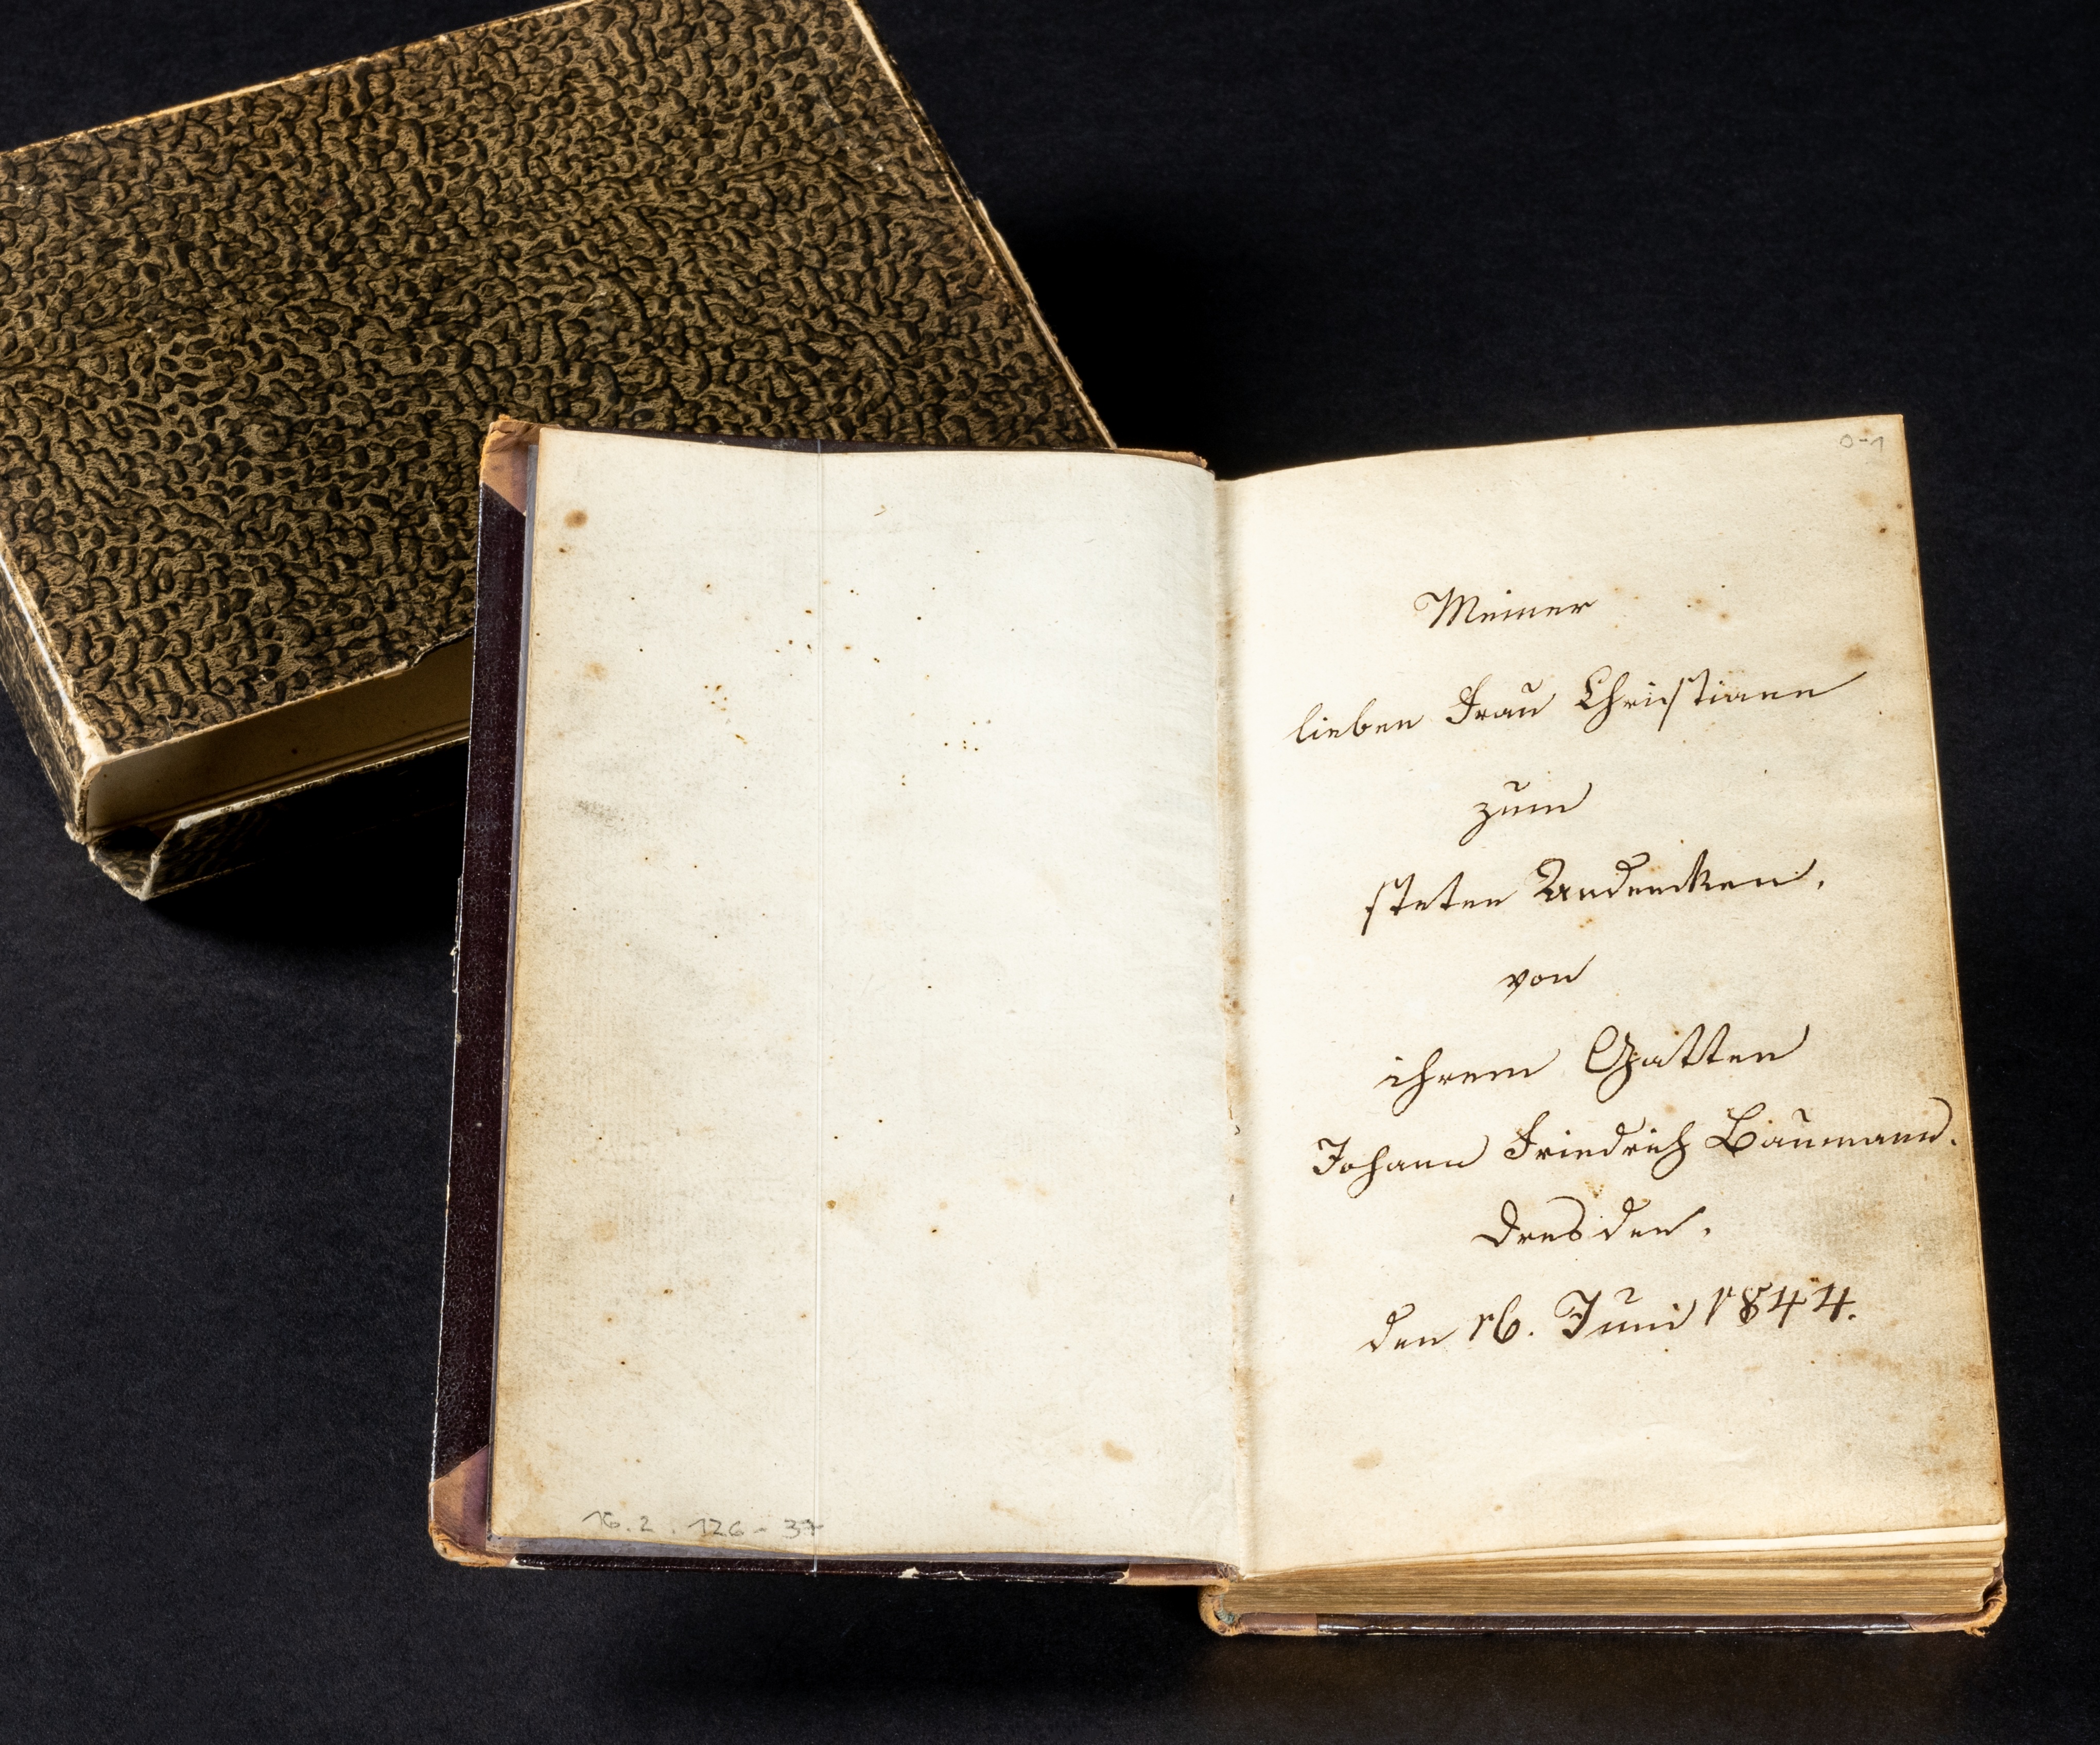 16.2.126-37
0-1
Meiner
lieben Frau Christiane
zum
steten Andencken,
von
ihrem Gatten
Johann Friedrich Baumann.
Dresden,
den 16. Juni 1844.